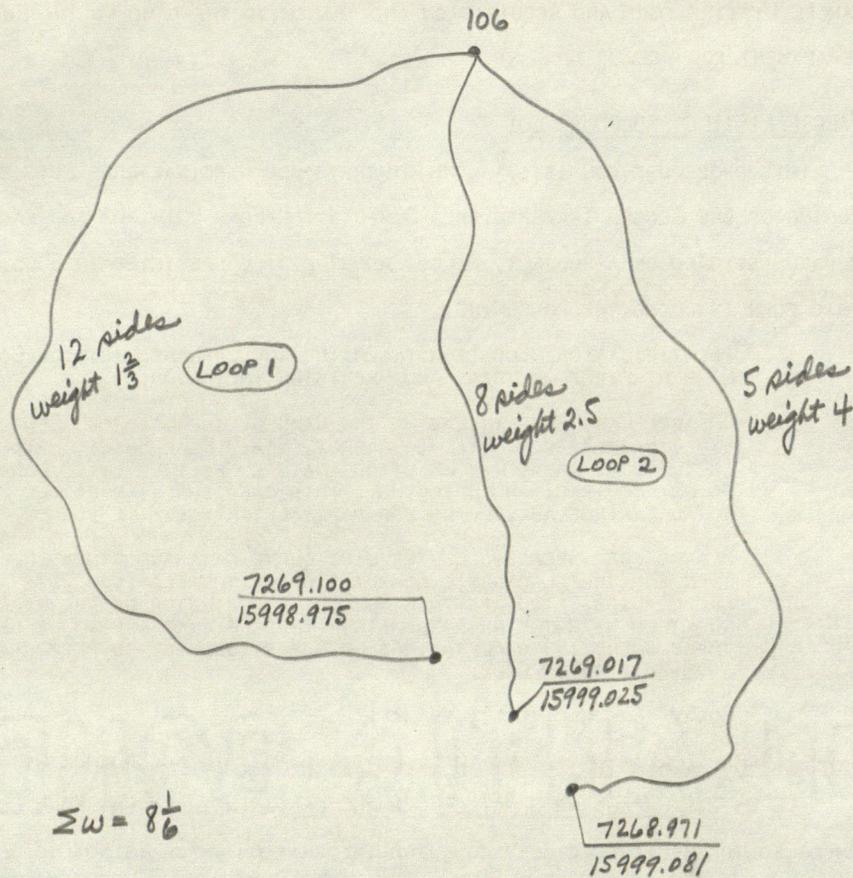 106
12 sides
weight 1 2/3
LOOP 1
8 sides
weight 2.5
5 sides
weight 4
LOOP 2
7269.100
15998.975
7269.017
15999.025
Σw = 8 1/6
7268.971
15999.081